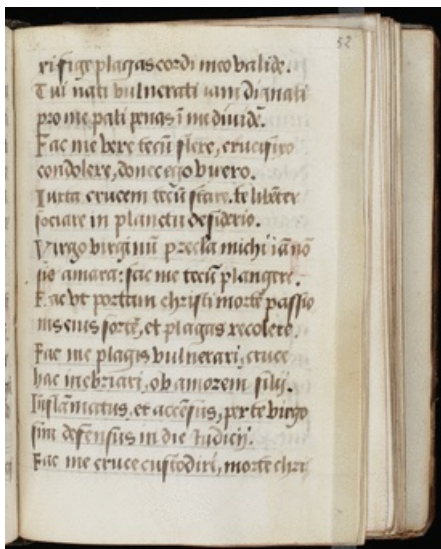 52
xi fige plagas cordi meo valide.
Tui nati vulnerati iam dignati
pro me pati penas ī me divide.
Fac me vere tecū flere, crucifixo
condolere, donec ego vixero.
Iuxta crucem tecū stare. te libēter
sociare in planctu desiderio.
Virgo virginū precla michi iā nō
sis amara: fac me tecū plangere.
Fac vt portam christi mortē passio
nis eius sortē, et plagas recolere.
Fac me plagis vulnerari, cruce
hac inebriari, ob amorem filij.
Inflāmatus, et accēsus, per te virgo
sim defensus in die Iudicij.
Fac me cruce custodiri, morte chri